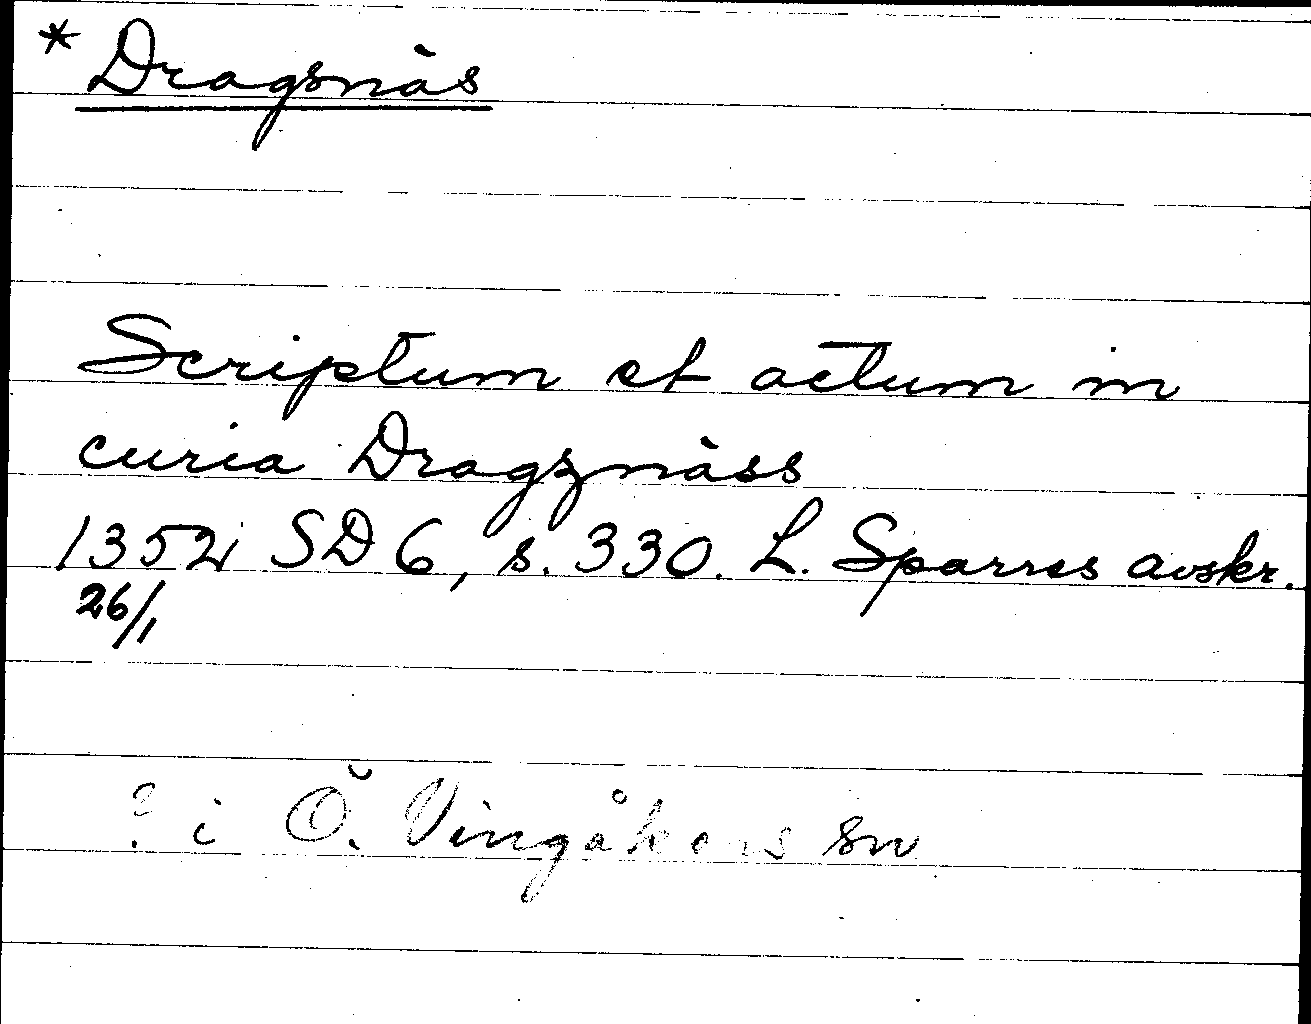 * Dragsnäs
Scriptum et actum in
curia Dragznäss
1352 SD 6, s. 330. L. Sparres avskr.
26/1
? i Ö. Vingåkers sn